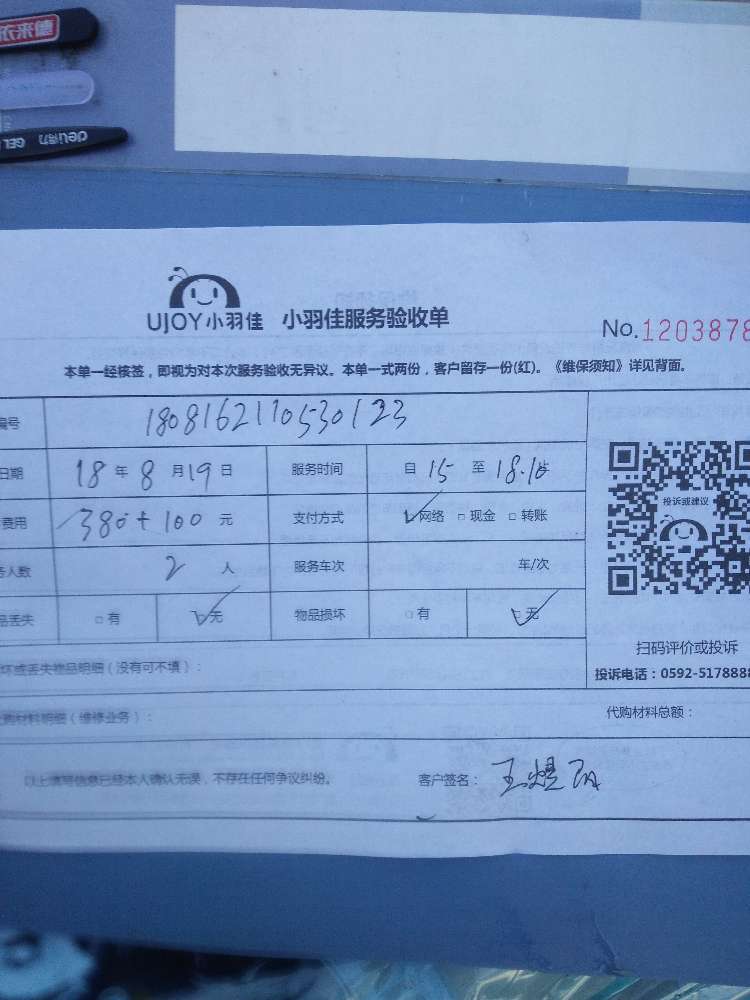 deli得力 GEL
UJOY小羽佳 小羽佳服务验收单
No.1203878
本单一经核签，即视为对本次服务验收无异议。本单一式两份，客户留存一份(红)。《维保须知》详见背面。
编号 1808162110530123
日期 18年8月19日 服务时间 自15至18.10
费用 380+100元 支付方式 网络 □现金 □转账
投诉或建议
人数 2人 服务车次 车/次
品丢失 □有 □无 物品损坏 □有 □无
扫码评价或投诉
坏或丢失物品明细（没有可不填）：
投诉电话：0592-5178888
购材料明细（维修业务）： 代购材料总额：
以上填写信息已经本人确认无误，不存在任何争议纠纷。 客户签名：王煜